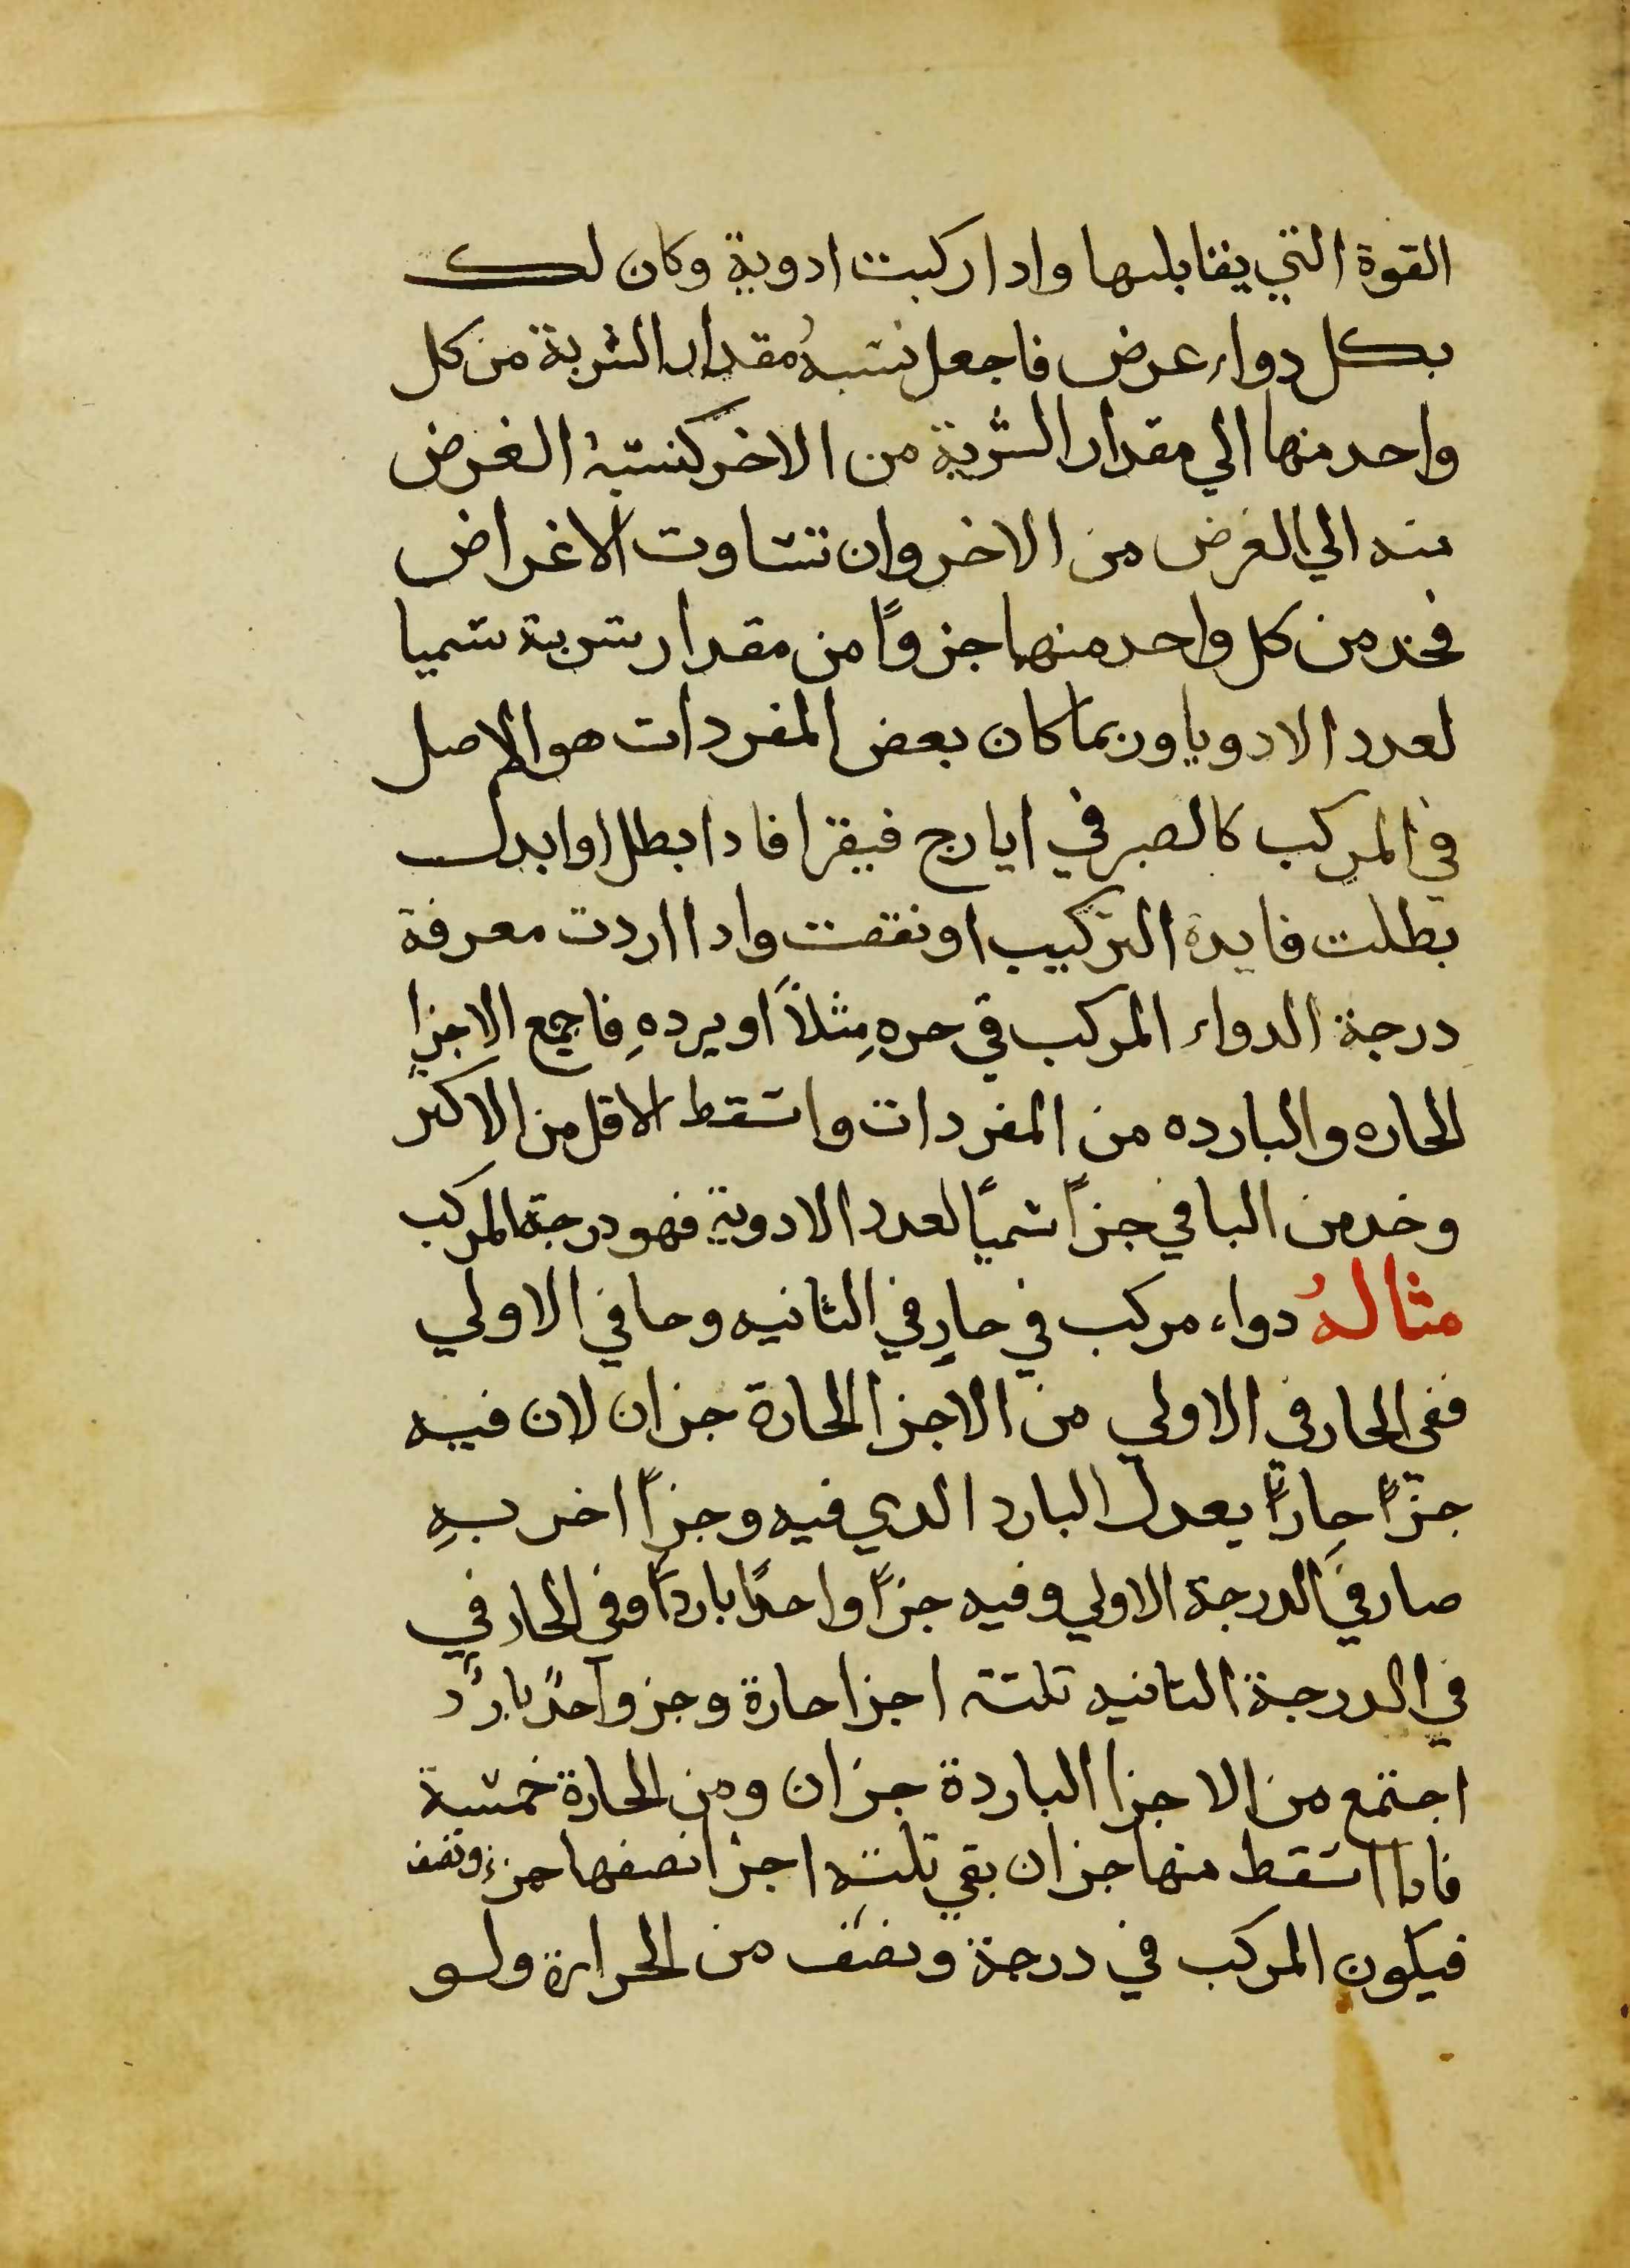 القوة التي يقابلها وادا ركبت ادوية وكان لك
بكل دواء عرض فاجعل نسبهُ مقدار الشربة من كل
واحد منها الي مقدار الشربة من الاخر كنسبة الغرض
منه الي الغرض من الاخر وان تساوت الاغراض
فخد من كل واحد منها جزوًا من مقدار شربة سميا
لعدد الادويا وربما كان بعض المفردات هو الاصل
في المركب كالصبر في ايارج فيقرا فادا بطل او ابدل
بطلت فايدة التركيب او نقصت وادا اردت معرفة
درجة الدواء المركب في حرهِ مثلاً او بردهِ فاجمع الاجزا
الحاره والبارده من المفردات واسقط الاقل من الاكثر
وخد من الباقي جزاً سميًا لعدد الادوية فهو درجة المركب
مثالهُ دواء مركب في حارٍ في الثانيه وحا في الاولي
ففي الحار في الاولي من الاجزا الحارة جزان لان فيه
جزاً حاراً يعدل البارد الدي فيه وجزاً اخر بهِ
صار في الدرجة الاولي وفيه جزاً واحداً بارداً وفي الحار في
في الدرجة الثانيه تلتة اجزا حارة وجز واحدٌ باردٌ
اجتمع من الاجزا الباردة جزان ومن الحارة خمسة
فادا اسقط منها جزان بقي تلتة اجزا نصفها جزء ونصف
فيكون المركب في درجة ونصف من الحرارة ولو